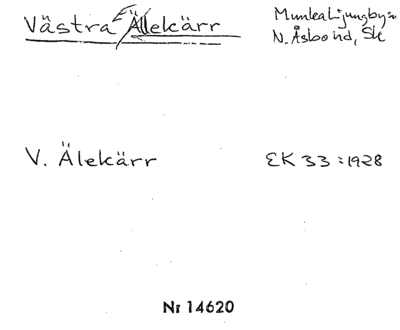 Västra Älekärr
Munka Ljungby sn
N. Åsbo hd, Sk
V. Älekärr
EK 33 : 1928
Nr 14620